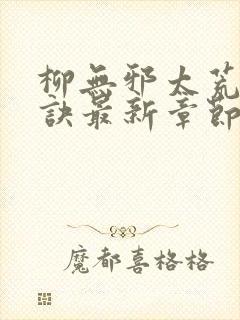 柳無邪太荒
訣最新章節
魔都喜格格